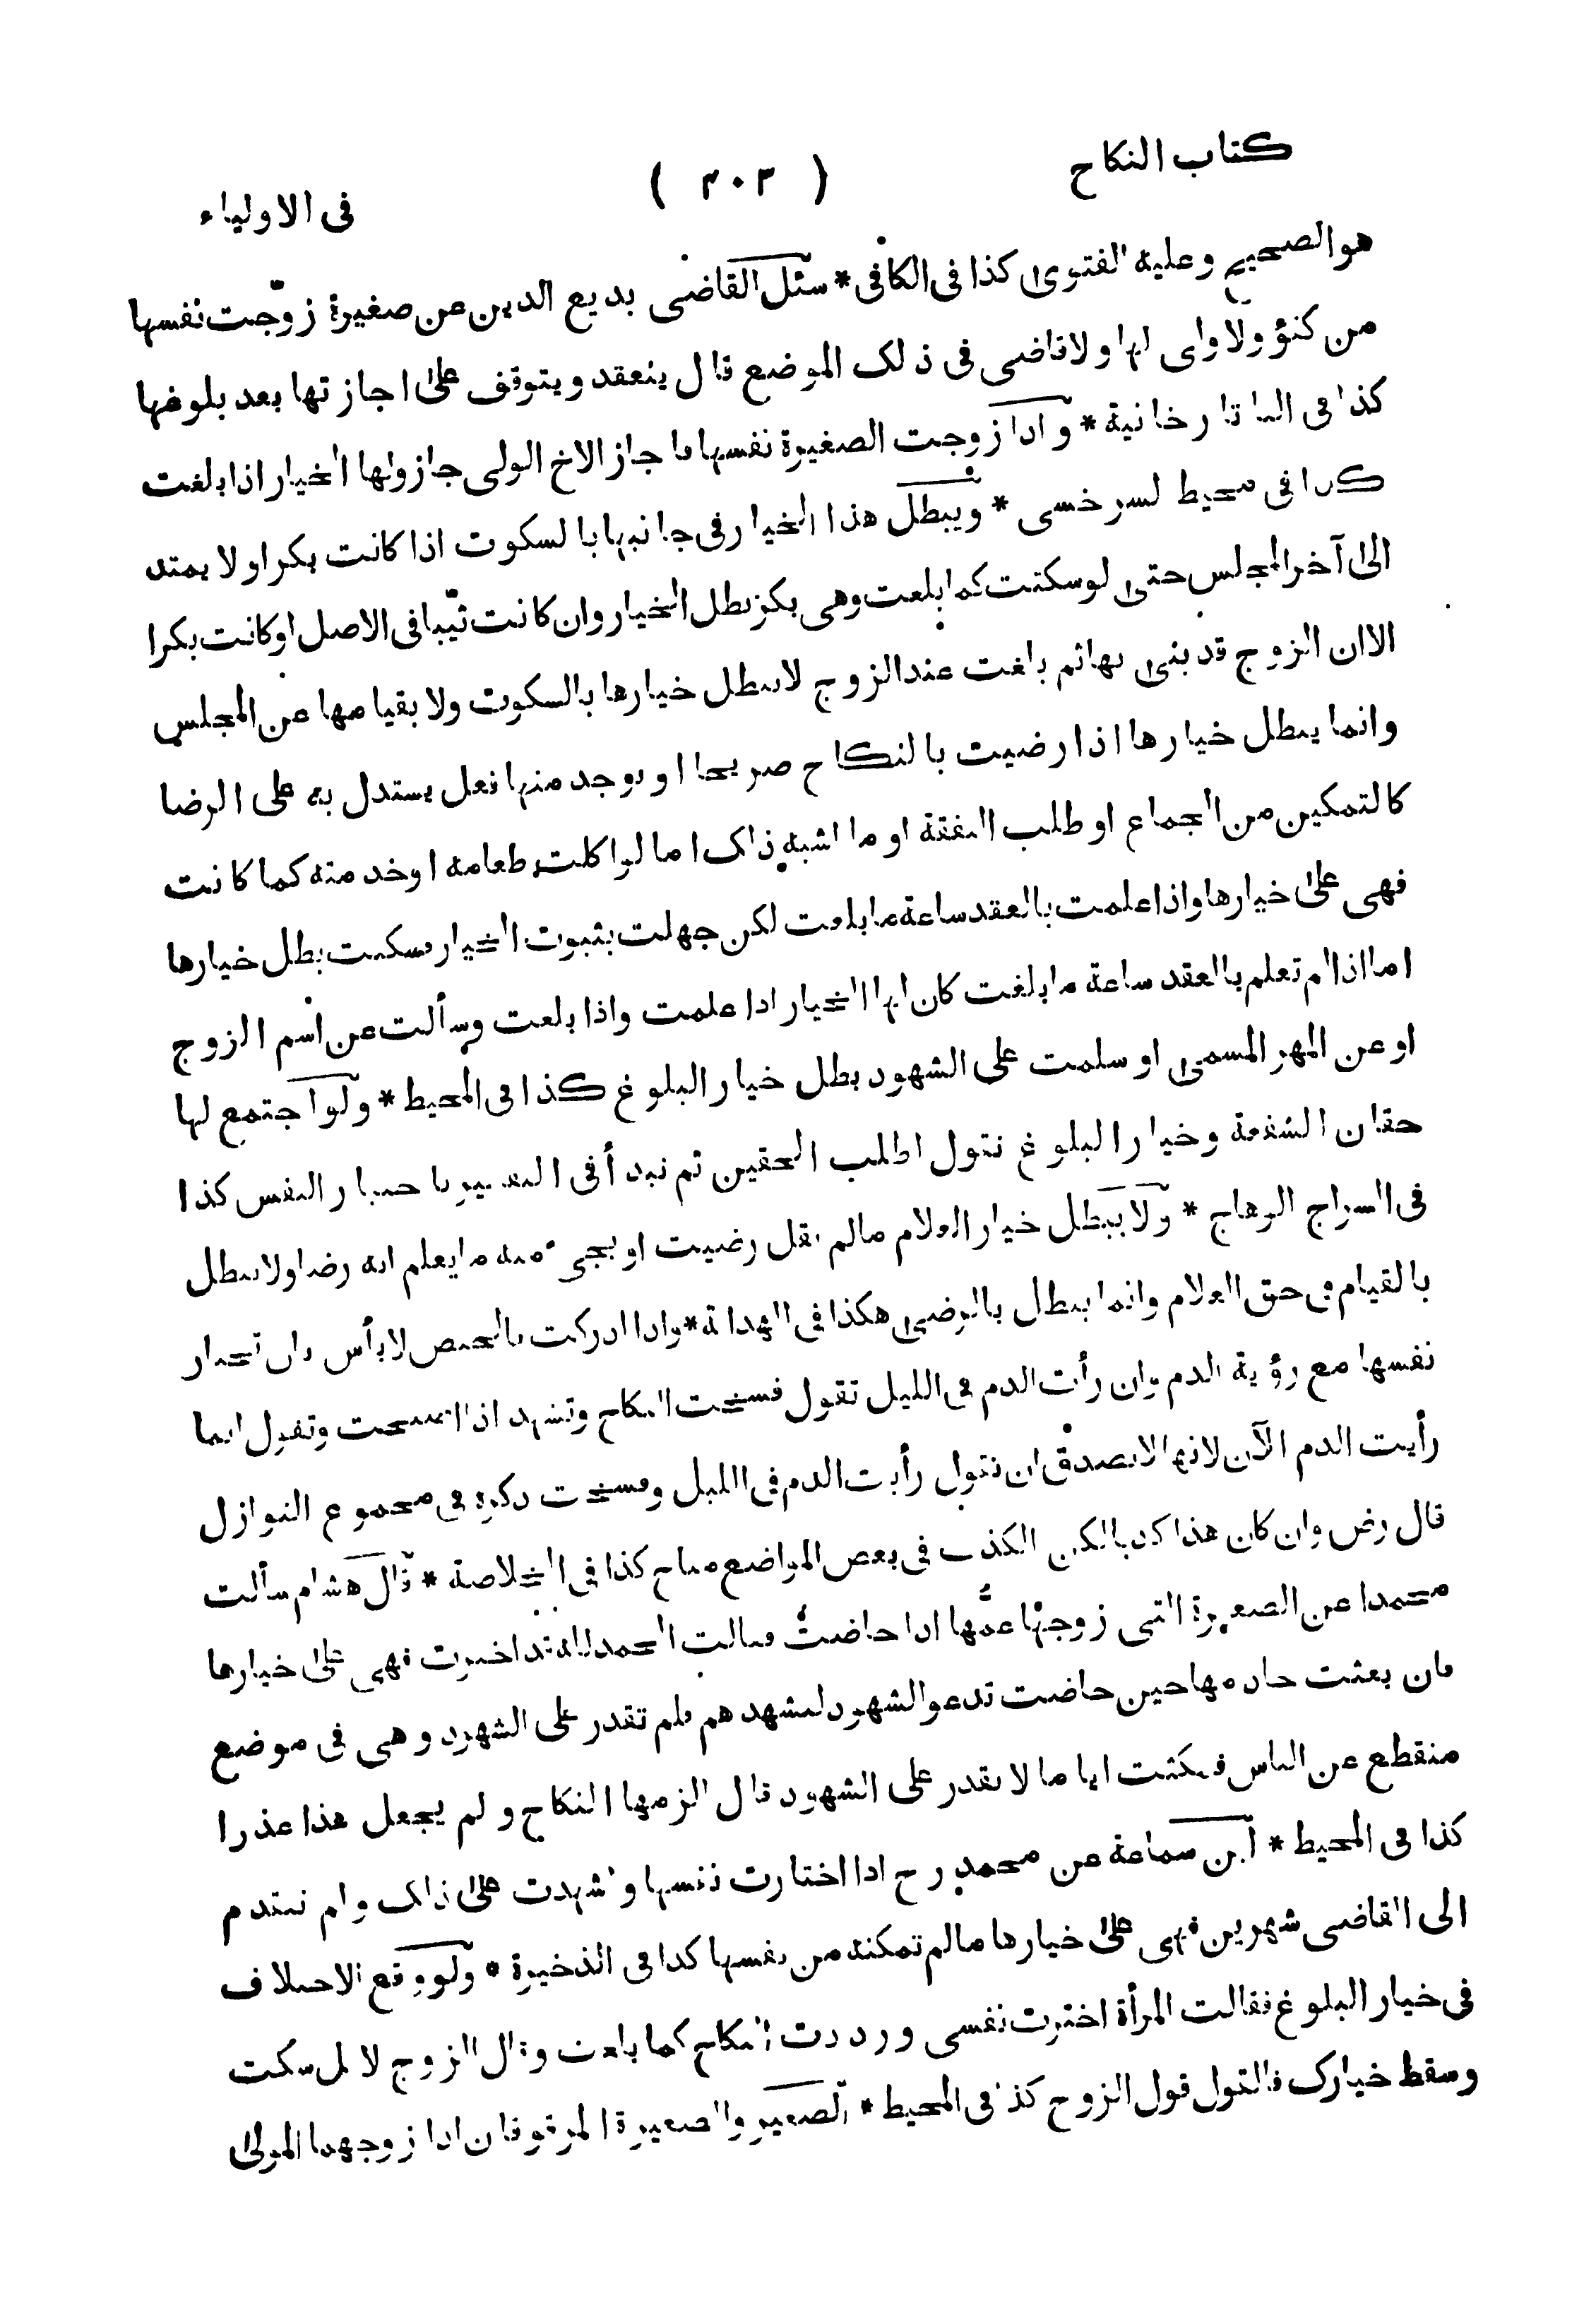 كتاب النكاح
( ٣٠٣ )
فى الاولياء
هو الصحيح وعليه الفتوى كذا فى الكافى * سئل القاضى بديع الدين عن صغيرة زوّجت نفسها
من كفؤ ولا ولى لها ولا قاضى فى ذلك الموضع قال ينعقد ويتوقف على اجازتها بعد بلوغها
كذا فى التاتارخانية * واذا زوجت الصغيرة نفسها فاجاز الاخ الولى جاز ولها الخيار اذا بلغت
كذا فى محيط السرخسى * ويبطل هذا الخيار فى جانبها بالسكوت اذا كانت بكرا ولا يمتد
الى آخر المجلس حتى لو سكتت كما بلغت وهى بكر بطل الخيار وان كانت ثيّبا فى الاصل او كانت بكرا
الا ان الزوج قد بنى بها ثم بلغت عند الزوج لا يبطل خيارها بالسكوت ولا بقيامها عن المجلس
وانما يبطل خيارها اذا رضيت بالنكاح صريحا او يوجد منها فعل يستدل به على الرضا
كالتمكين من الجماع او طلب النفقة او ما اشبه ذلك اما لو اكلت طعامه او خدمته كما كانت
فهى على خيارها واذا علمت بالعقد ساعة ما بلغت لكن جهلت بثبوت الخيار فسكتت بطل خيارها
اما اذا لم تعلم بالعقد ساعة ما بلغت كان لها الخيار اذا علمت واذا بلغت وسألت عن اسم الزوج
او عن المهر المسمى او سلمت على الشهود بطل خيار البلوغ كذا فى المحيط * ولو اجتمع لها
حقان الشفعة وخيار البلوغ تقول اطلب الحقين ثم تبدأ فى التفسير باختيار النفس كذا
فى السراج الوهاج * ولا يبطل خيار الغلام مالم يقل رضيت او يجىء منه ما يعلم انه رضا ولا يبطل
بالقيام فى حق الغلام وانما يبطل بالرضى هكذا فى الهداية * واذا ادركت بالحيض لا بأس بان تختار
نفسها مع رؤية الدم وان رأت الدم فى الليل تقول فسخت النكاح وتشهد اذا اصبحت وتقول انما
رأيت الدم الآن لانها لا تصدق ان تقول رأيت الدم فى الليل وفسخت ذكره فى مجموع النوازل
قال رض وان كان هذا كذبا لكن الكذب فى بعض المواضع مباح كذا فى الخلاصة * قال هشام سألت
محمدا عن الصغيرة التى زوجها عمّها اذا حاضت فقالت الحمد لله قد اخترت فهى على خيارها
فان بعثت خادمها حين حاضت تدعو الشهود لتشهدهم فلم تقدر على الشهود وهى فى موضع
منقطع عن الناس فمكثت اياما لا تقدر على الشهود قال الزمها النكاح ولم يجعل هذا عذرا
كذا فى المحيط * ابن سماعة عن محمد رح اذا اختارت نفسها واشهدت على ذلك ولم تتقدم
الى القاضى شهرين فهى على خيارها مالم تمكنه من نفسها كذا فى الذخيرة * ولو وقع الاختلاف
فى خيار البلوغ فقالت المرأة اخترت نفسى ورددت النكاح كما بلغت وقال الزوج لا بل سكت
وسقط خيارك فالقول قول الزوج كذا فى المحيط * الصغير والصغيرة المرقوقان اذا زوجهما المولى